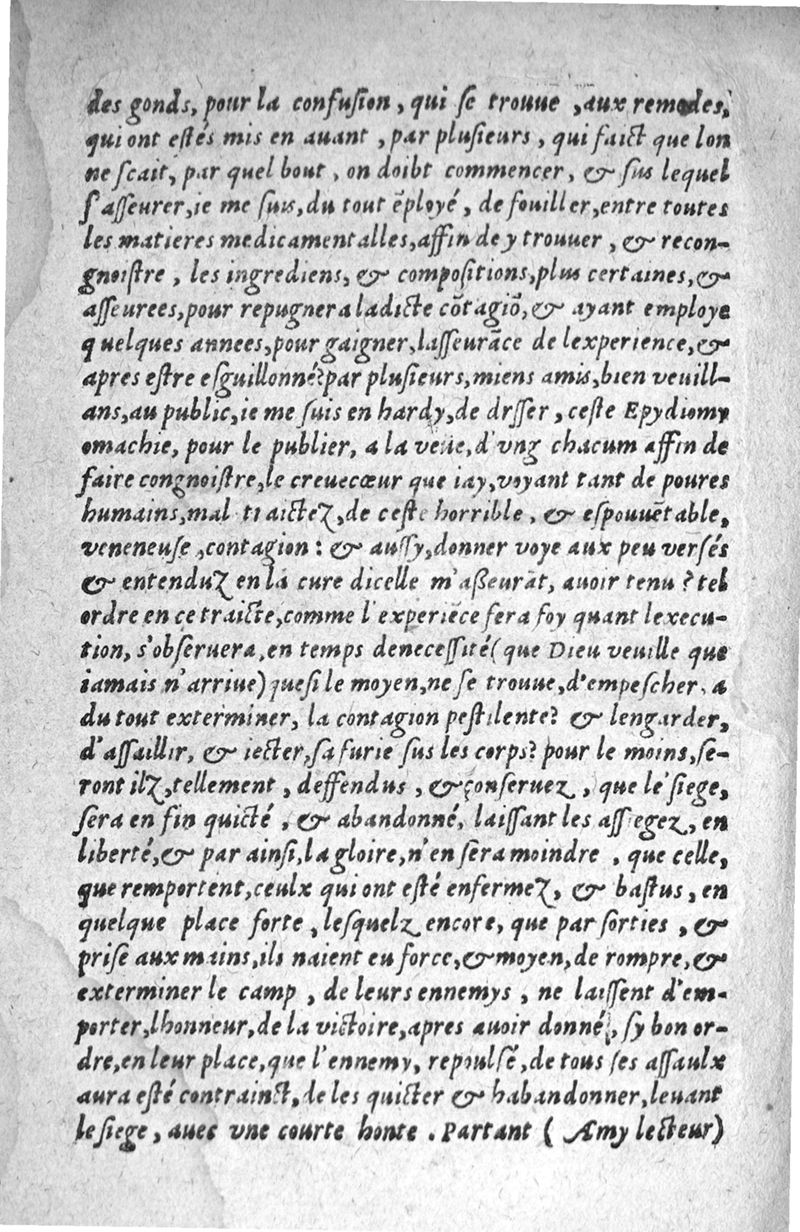 des gonds, pour la confuſion, qui ſe trouue, aux remedes,
qui ont eſtés mis en auant, par pluſieurs, qui faict que lon
ne ſcait, par quel bout, on doibt commencer, & ſus lequel
ſ'aſſeurer, ie me ſuis, du tout ẽployé, de fouiller, entre toutes
les matieres medicamentalles, affin de y trouuer, & recon-
gnoiſtre, les ingrediens, & compoſitions, plus certaines, &
aſſeurees, pour repugner a ladicte cõtagiõ, & ayant employe
quelques annees, pour gaigner, laſſeurãce de lexperience, &
apres eſtre eſguillonné? par pluſieurs, miens amis, bien veuill-
ans, au public, ie me ſuis en hardy, de drſſer, ceſte Epydiomy
omachie, pour le publier, a la veüe, d'vng chacum affin de
faire congnoiſtre, le creuecœur que iay, voyant tant de poures
humains, mal traictez, de ceſte horrible, & eſpouuẽtable,
veneneuſe, contagion: & auſſy, donner voye aux peu verſés
& entenduz en la cure dicelle m'aßeurãt, auoir tenu? tel
ordre en ce traicte, comme l'experiẽce fera foy quant lexecu-
tion, s'obſeruera, en temps deneceſſité (que Dieu veuille que
iamais n'arriue) queſi le moyen, ne ſe trouue, d'empeſcher, a
du tout exterminer, la contagion peſtilente? & lengarder,
d'aſſaillir, & iecter, ſa furie ſus les corps? pour le moins, ſe-
ront ilz, tellement, deffendus, & conſeruez, que le ſiege,
ſera en fin quicté, & abandonné, laiſſant les aſſiegez, en
liberté, & par ainſi, la gloire, n'en ſera moindre, que celle,
que remportent, ceulx qui ont eſté enfermez, & baſtus, en
quelque place forte, leſquelz encore, que par ſorties, &
priſe aux mains, ils naient eu force, & moyen, de rompre, &
exterminer le camp, de leurs ennemys, ne laiſſent d'em-
porter, lhonneur, de la victoire, apres auoir donné, ſy bon or-
dre, en leur place, que l'ennemy, repoulſé, de tous ſes aſſaulx
aura eſté contrainct, de les quicter & habandonner, leuant
le ſiege, auec vne courte honte. Partant (Amy lecteur)